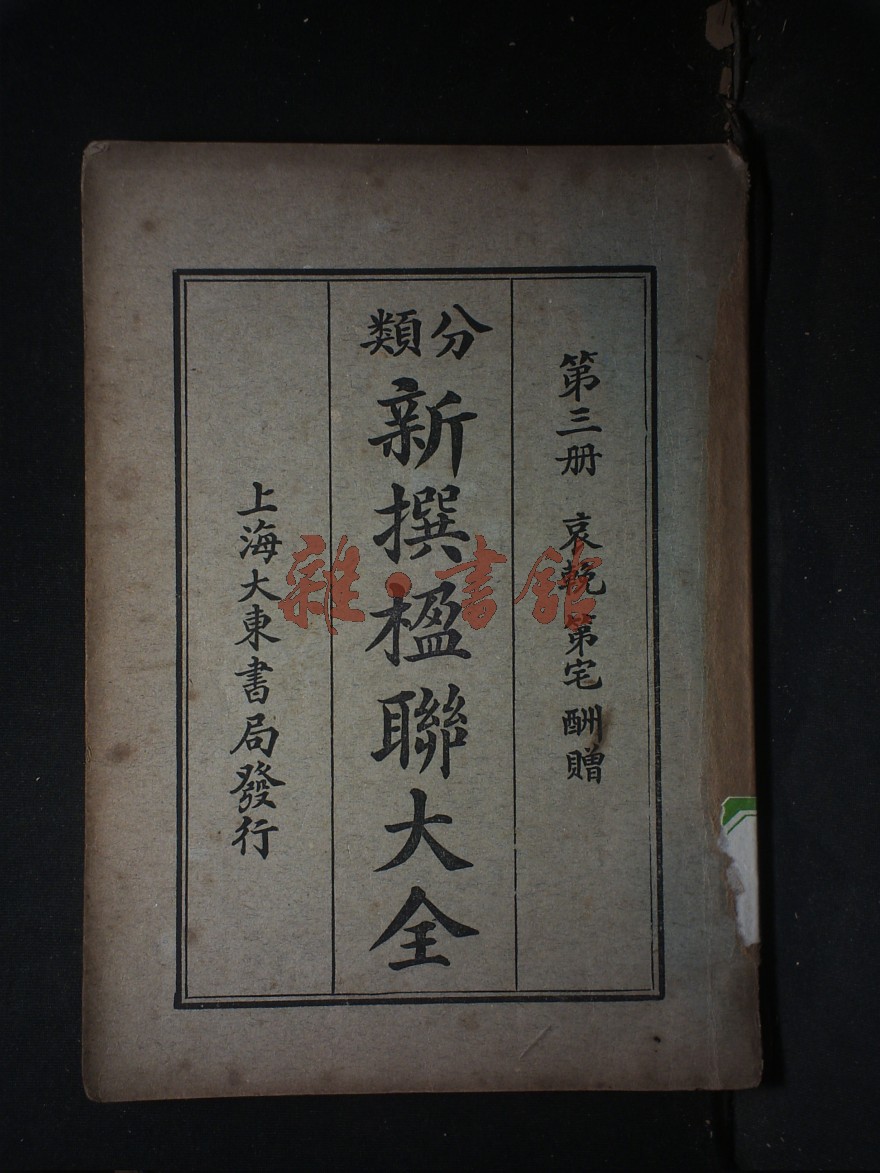 第三册 哀輓 第宅 酬贈
分類
新撰楹聯大全
上海大東書局發行
雜·書館